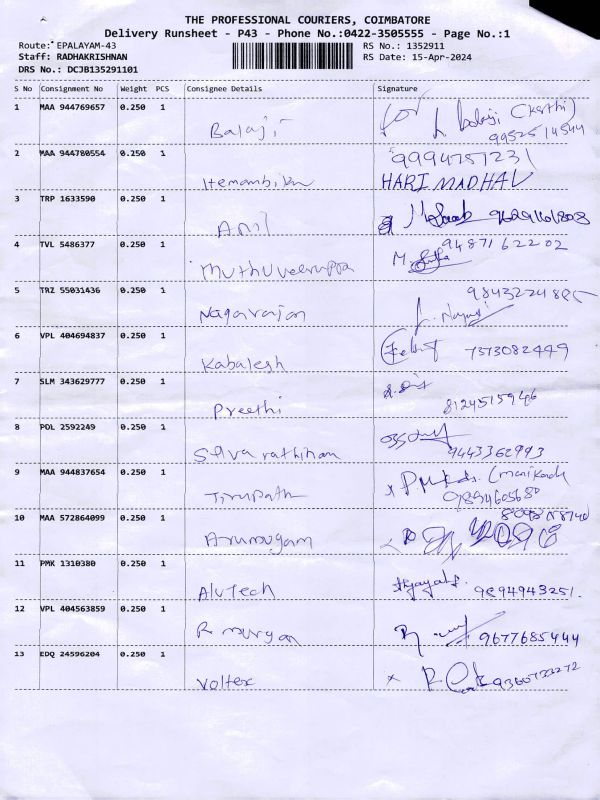 THE PROFESSIONAL COURIERS, COIMBATORE
Delivery Runsheet - P43 - Phone No.:0422-3505555 - Page No.:1
Route: EPALAYAM-43 RS No.: 1352911
Staff: RADHAKRISHNAN RS Date: 15-Apr-2024
DRS No.: DCJB135291101
S No Consignment No Weight PCS Consignee Details Signature
1 MAA 944769657 0.250 1
Balaji for Balaji (Karthi)
9952514544
2 MAA 944780554 0.250 1 9994751231
HARI MADHAV
3 TRP 1633590 0.250 1
Anil
4 TVL 5486377 0.250 1 9487162202
Muthuveerappa M.
5 TRZ 55031436 0.250 1
Nagarajan
6 VPL 404694837 0.250 1
Kabalesh 7373082449
7 SLM 343629777 0.250 1
Preethi 8124515946
8 POL 2592249 0.250 1
Selvarathinam 9443362993
9 MAA 944837654 0.250 1
Tirupath
10 MAA 572864099 0.250 1
Arumugam
11 PMK 1310380 0.250 1
Alutech 9894943251.
12 VPL 404563859 0.250 1
R murgan 9677685444
13 EDQ 24596204 0.250 1
Voltex x R